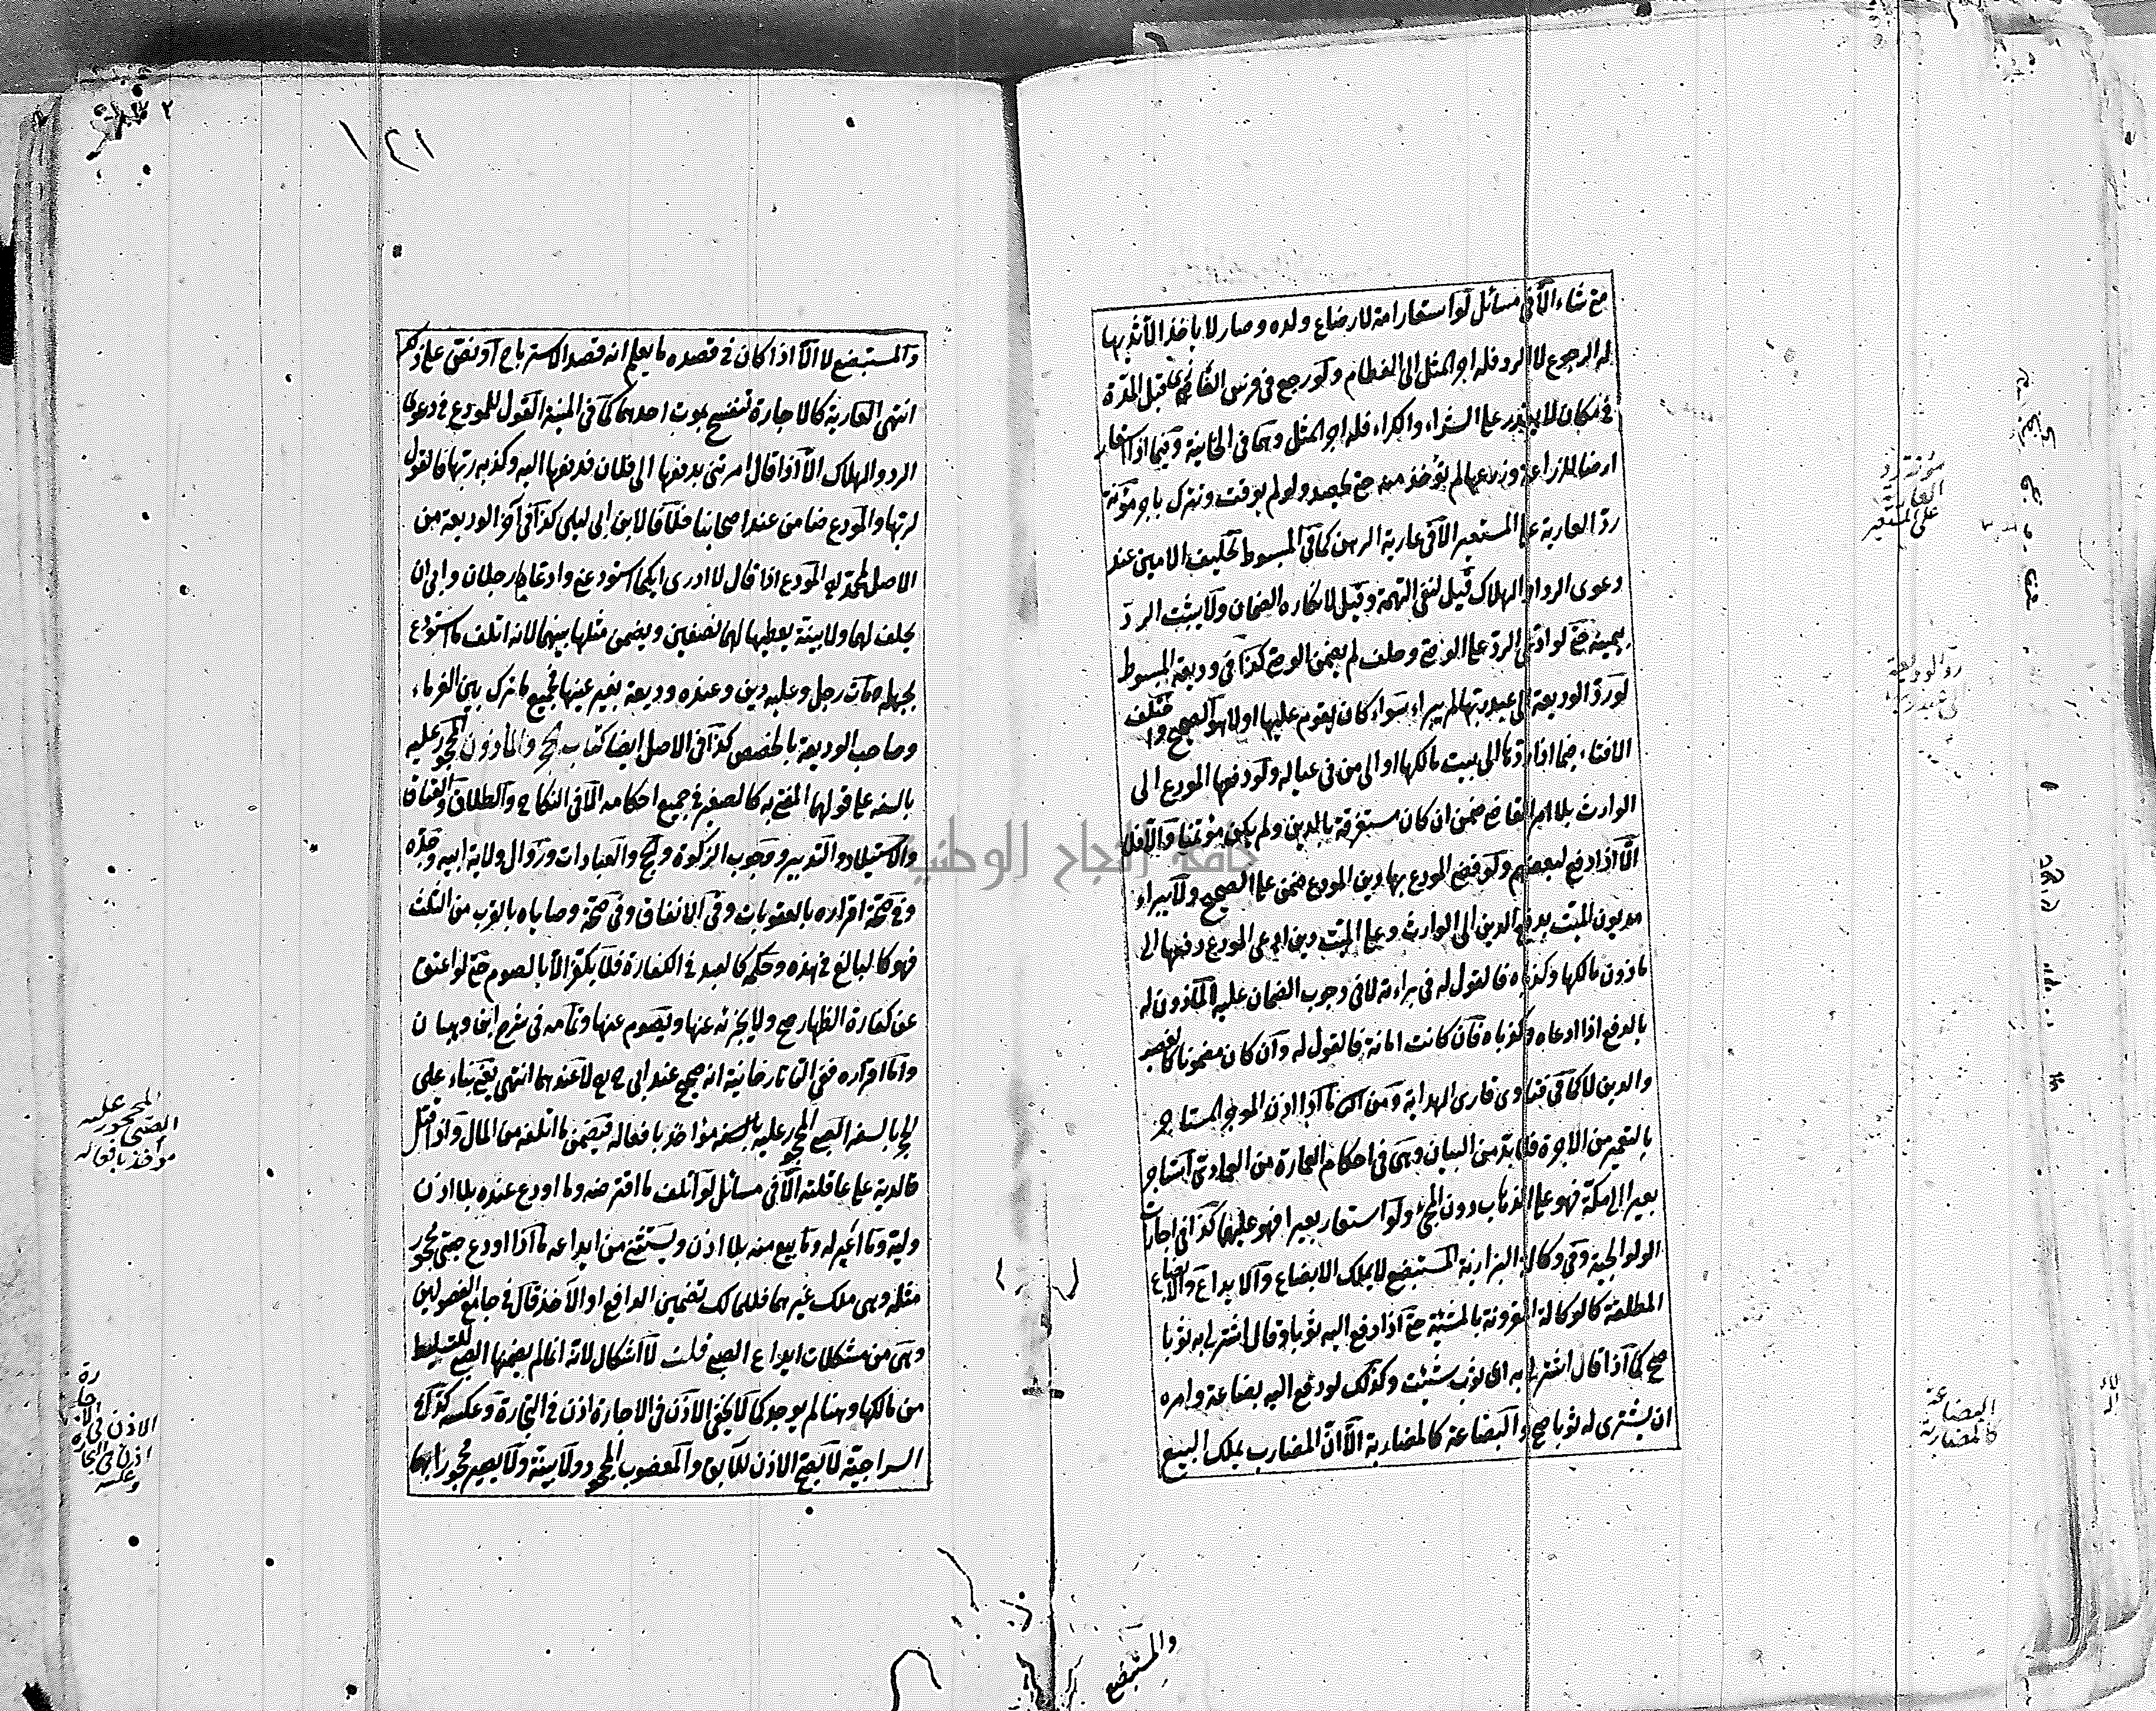 متى شاء الا في مسائل لو استعار امة لارضاع ولده وصار لا ياخذ الا ثديها
له الرجوع لا الرد فله اجر المثل الى الفطام ولو رجع في فرس الغازي قبل المدة
في مكان لا يقدر على الشراء والكراء فله اجر المثل وهما في الخانية وفيما اذا استعار
ارضا للزراعة وزرعها لم يؤخذ منه حتى يحصد ولو لم يوقت وتترك باجر مؤنة
رد العارية على المستعير الا في عارية الرهن كما في المبسوط تحليف الامين عند
دعوى الرد او الهلاك قيل لنفي التهمة وقيل لانكاره الضمان ولا يثبت الرد
بيمينه حتى لو ادعى الرد على الوصي وحلف لم يضمن الوصي كذا في وديعة المبسوط
لو رد الوديعة الى عبد ربها لم يبراء سواء كان يقوم عليها او لا هو الصحيح واختلف
الافتاء فيما اذا ردها الى بيت مالكها او الى من في عياله ولو دفعها المودع الى
الوارث بلا امر القاضي ضمن ان كان مستغرقة بالدين ولم يكن مؤتمنا والا فلا
الا اذا دفع لبعضهم ولو قضى المودع بها دين المودع ضمن على الصحيح ولا يبراء
مديون الميت بدفع الدين الى الوارث وعلى الميت دين ادعى المودع دفعها الى
ماذون مالكها وكذباه فالقول له في براءته لا في وجوب الضمان عليه الماذون له
بالدفع اذا ادعاه وكذباه فان كانت امانة فالقول له وان كان مضمونا كالغصب
والدين لا كما في فتاوى قارى الهداية ومن الثاني ما اذا اذن الموجر للمستاجر
بالتعمير من الاجرة فلا بد من البيان وهي في احكام العمارة من العمادى استاجر
بعيرا الى مكة فهو على الذهاب دون المجئ ولو استعار بعيرا فهو عليهما كذا في اجارت
الولوالجية وفي وكالة البزازية المستبضع لا يملك الابضاع والايداع والابضاع
المطلقة كالوكالة المقرونة بالمشيئة حتى اذا دفع اليه ثوبا وقال اشتر لي به ثوبا
صح كما اذا قال اشتر لي به اى ثوب شئت وكذلك لو دفع اليه بضاعة وامره
ان يشترى له ثوبا صح والبضاعة كالمضاربة الا ان المضارب يملك البيع
والمستبضع
مؤنة رد
العارية
على المستعير
رد الوديعة
الى عبد ربها
البضاعة
كالمضاربة
١٢١
والمستبضع لا الا اذا كان في قصده ما يعلم انه قصد الاسترباح او نص على ذلك
انتهى العارية كالاجارة تنفسخ بموت احدهما كما في المنية القول للمودع في دعوى
الرد والهلاك الا اذا قال امرتني بدفعها الى فلان فدفعتها اليه وكذبه ربها فالقول
لربها والمودع ضامن عند اصحابنا خلافا لابن ابى ليلى كذا في آخر الوديعة من
الاصل لمحمد به المودع اذا قال لا ادرى ايكما استودعني وادعاها رجلان وابى ان
يحلف لهما ولا بينة يعطيها لهما نصفين ويضمن مثلها بينهما لانه اتلف ما استودع
بجهله مات رجل وعليه دين وعنده وديعة بغير عينها فجميع ما ترك بين الغرماء
وصاحب الوديعة بالحصص كذا في الاصل ايضا كتاب الحجر والماذون المحجور عليه
بالسفه على قولهما المفتى به كالصغير في جميع احكامه الا في النكاح والطلاق والعتاق
والاستيلاد والتدبير ووجوب الزكوة والحج والعبادات وزوال ولاية ابيه وجده
وفي صحة اقراره بالعقوبات وفي الانفاق وفي صحة وصاياه بالقرب من الثلث
فهو كالبالغ في هذه وحكمه كالعبد في الكفارة فلا يكفر الا بالصوم حتى لو اعتق
عن كفارة الظهار صح ولا يجزئه عنها ويصوم عنها وتمامه في شرح ابن وهبان
واما اقراره ففي التاتارخانية انه صحيح عند ابى ح به لا عندهما انتهى يعني بناء على
الحجر بالسفه الصبي المحجور عليه بالسفه مؤاخذ بافعاله فيضمن ما اتلفه من المال واذا قتل
فالدية على عاقلته الا في مسائل لو اتلف ما اقترضه وما اودع عنده بلا اذن
وليه وما اعير له وما بيع منه بلا اذن ويستثنى من ايداعه ما اذا اودع صبى محجور
مثله وهى ملك غيرهما فللمالك تضمين الدافع او الآخذ قال في جامع الفصولين
وهى من مشكلات ايداع الصبي قلت لا اشكال لانه انما لم يضمنها الصبي للتسليط
من مالكها وهنا لم يوجد كما لا يخفى الاذن في الاجارة اذن في التجارة وعكسه كذا في
السراجية لا يصح الاذن للآبق والمغصوب المجحود ولا بينة ولا يصير محجورا بهما
المحجور عليه
الصبي
مؤاخذ بافعاله
الاذن في الاجارة
اذن في التجارة
وعكسه
جامعة النجاح الوطنية